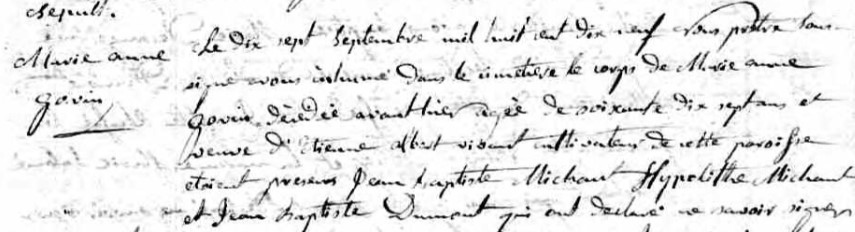 Sepult.
Marie anne
Govin
Le dix sept Septembre mil huit cent dix neuf Nous prêtre Sous
signé avons inhumé dans le cimetière le corps de Marie anne
Govin décédée avanthier agée de soixante dix sept ans et
veuve d'Etienne Albert vivant cultivateur de cette paroisse
étoient presens Jean Baptiste Michaut Hypolithe Michaut
et Jean Baptiste Dumont qui ont déclaré ne savoir signer